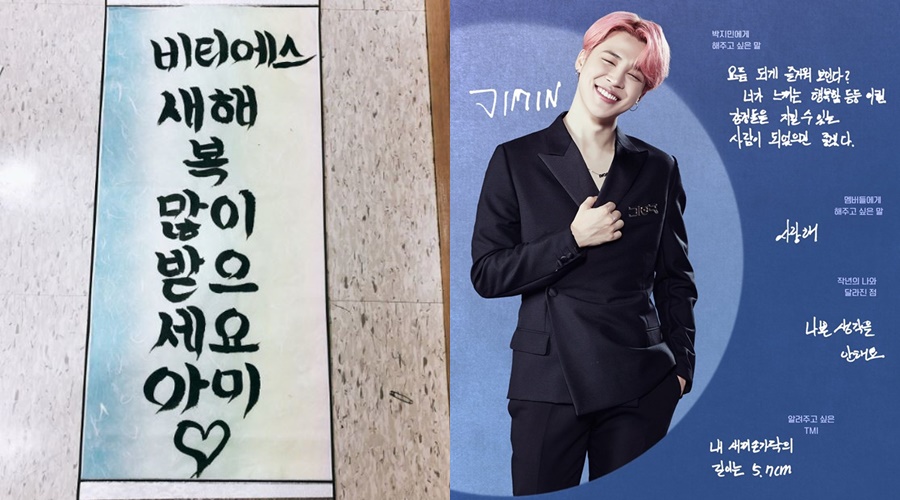 비티에스
새해
복
많이
받으
세요
아미
JIMIN
박지민에게
해주고 싶은 말
요즘 되게 즐거워 보인다?
너가 느끼는 행복함 등등 이런
감정들을 지킬 수 있는
사람이 되었으면 좋겠다.
멤버들에게
해주고 싶은 말
사랑해
작년의 나와
달라진 점
나쁜 생각을
안해요
알려주고 싶은
TMI
내 새끼손가락의
길이는 5.7cm